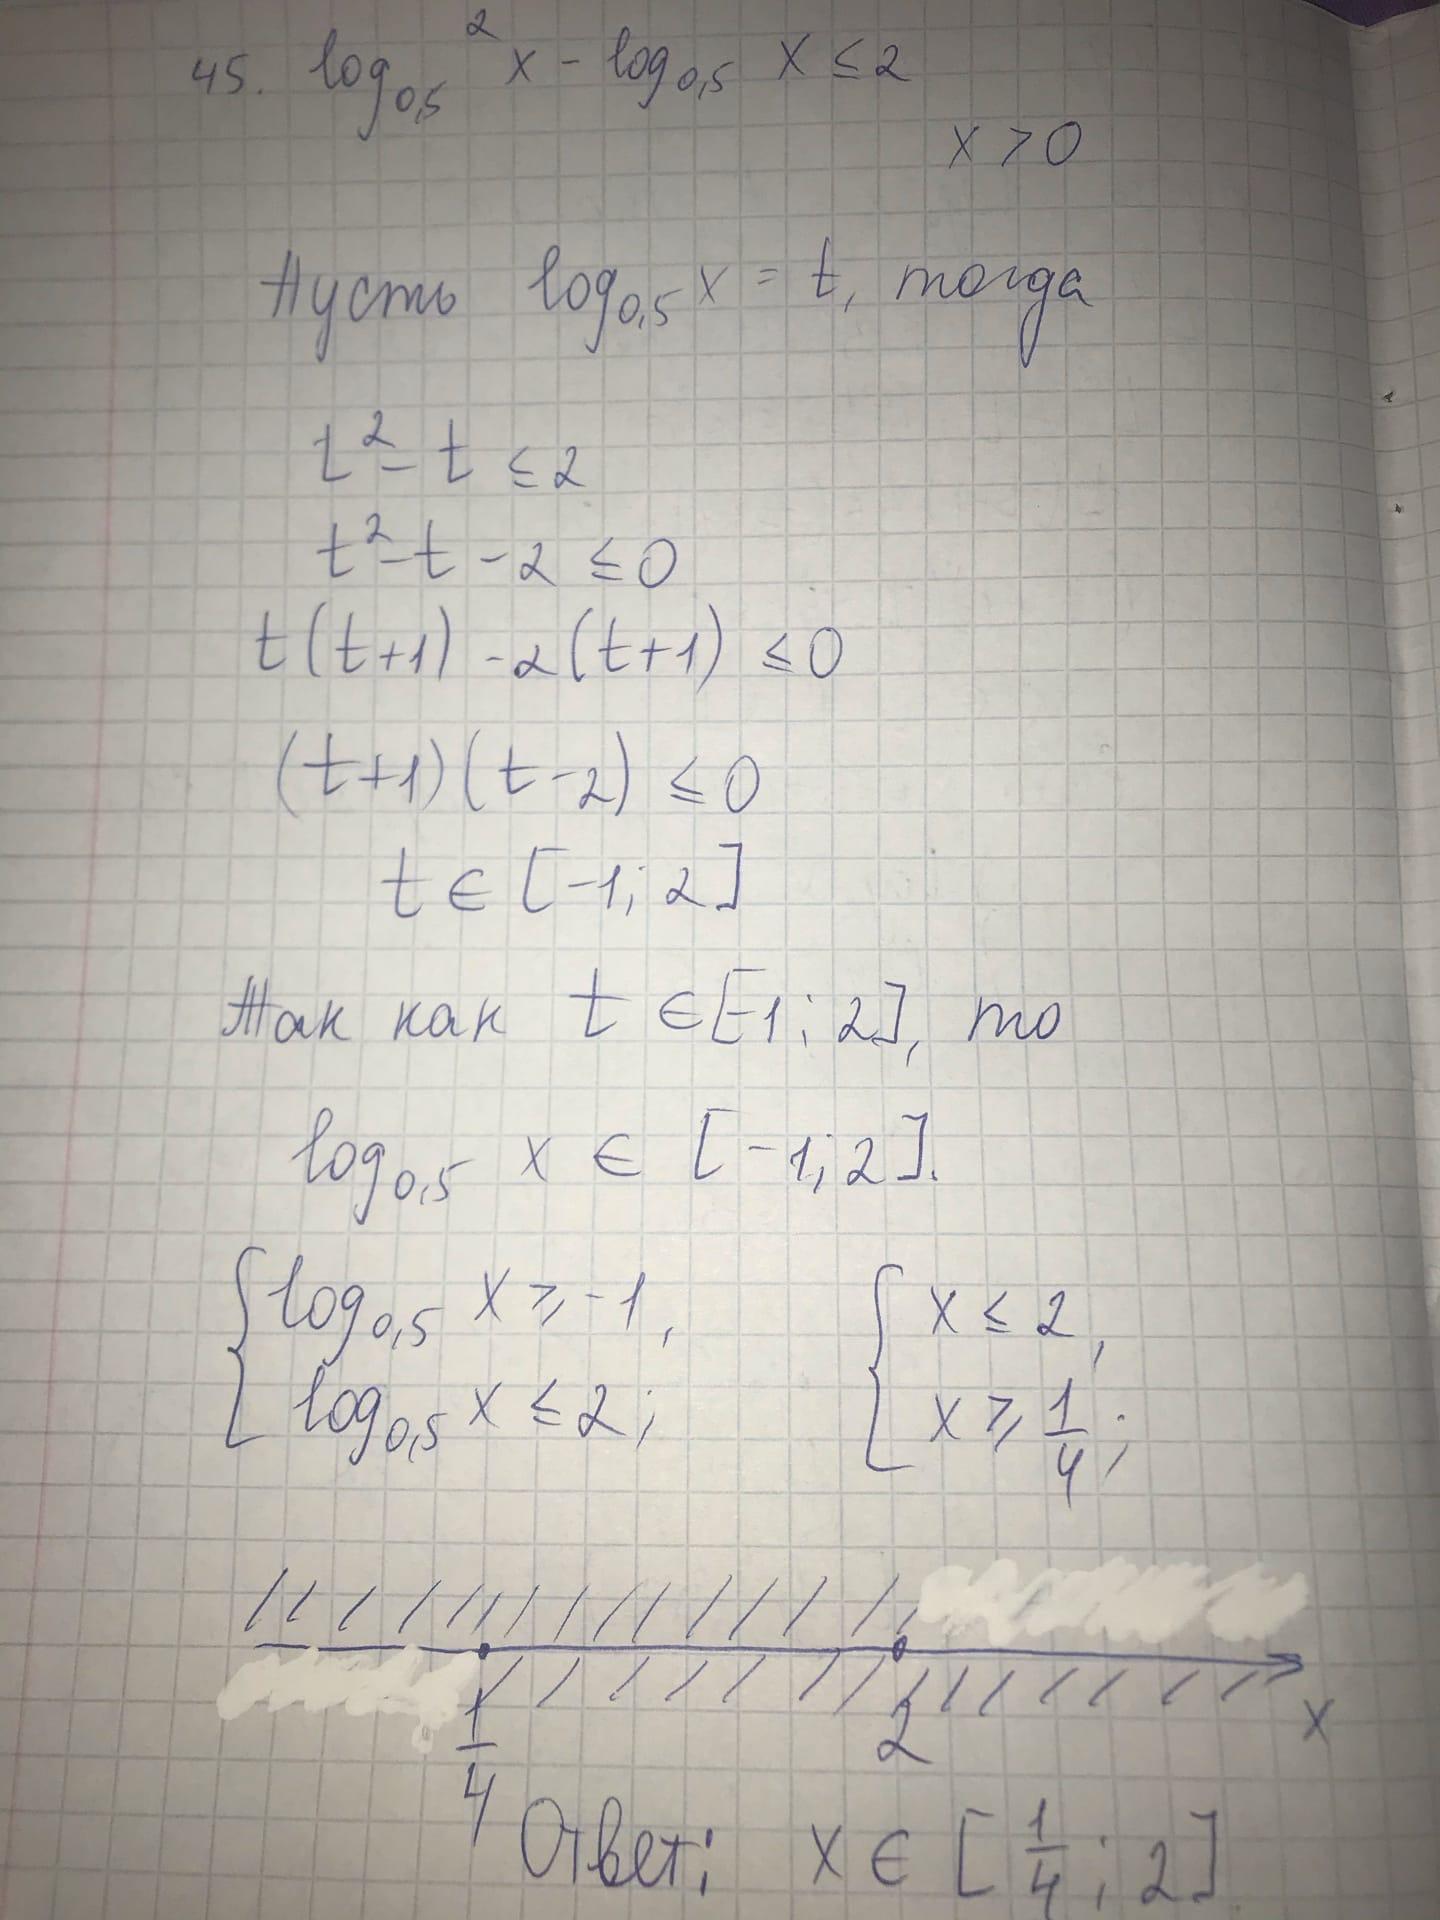 45. log₀,₅² x - log₀,₅ x ≤ 2
x > 0
Пусть log₀,₅ x = t, тогда
t² - t ≤ 2
t² - t - 2 ≤ 0
t(t+1) - 2(t+1) ≤ 0
(t+1)(t-2) ≤ 0
t ∈ [-1; 2]
Так как t ∈ [-1; 2], то
log₀,₅ x ∈ [-1; 2].
{ log₀,₅ x ≥ -1, { x ≤ 2,
log₀,₅ x ≤ 2; x ≥ 1/4;
1/4 2 x
Ответ: x ∈ [1/4; 2]